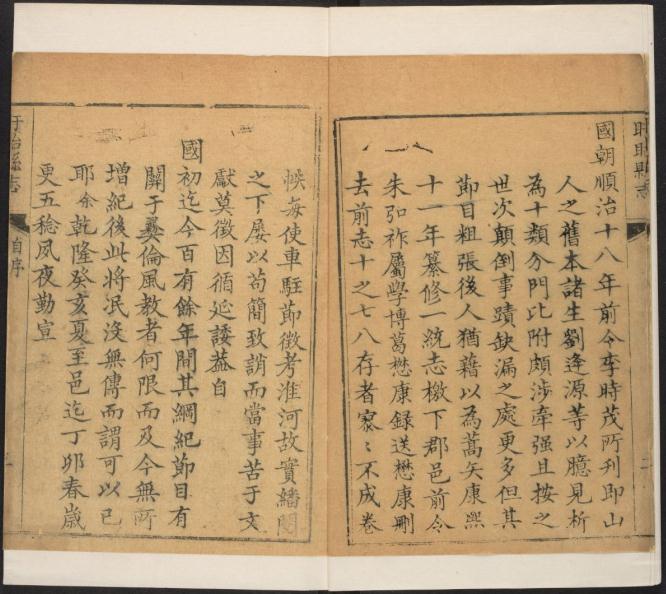 國朝順治十八年前令李時茂所刋即山
人之舊本諸生劉逢源等以臆見析
為十類分門比附頗涉牽强且按之
世次顛倒事蹟缺漏之處更多但其
節目粗張後人猶藉以為蒿矢康熙
十一年纂修一統志檄下郡邑前令
朱弘祚屬學博葛懋康録送懋康刪
去前志十之七八存者寥〻不成卷
帙每使車駐節徵考淮河故實繙閱
之下屡以苟簡致誚而當事苦于文
獻莫徵因循延諉葢自
國初迄今百有餘年間其綱紀節目有
關于彝倫風教者何限而及今無所
增紀後此將泯沒無傳而謂可以已
耶余乾隆癸亥夏至邑迄丁卯春歲
更五稔夙夜勤宣
盱眙縣志
自序